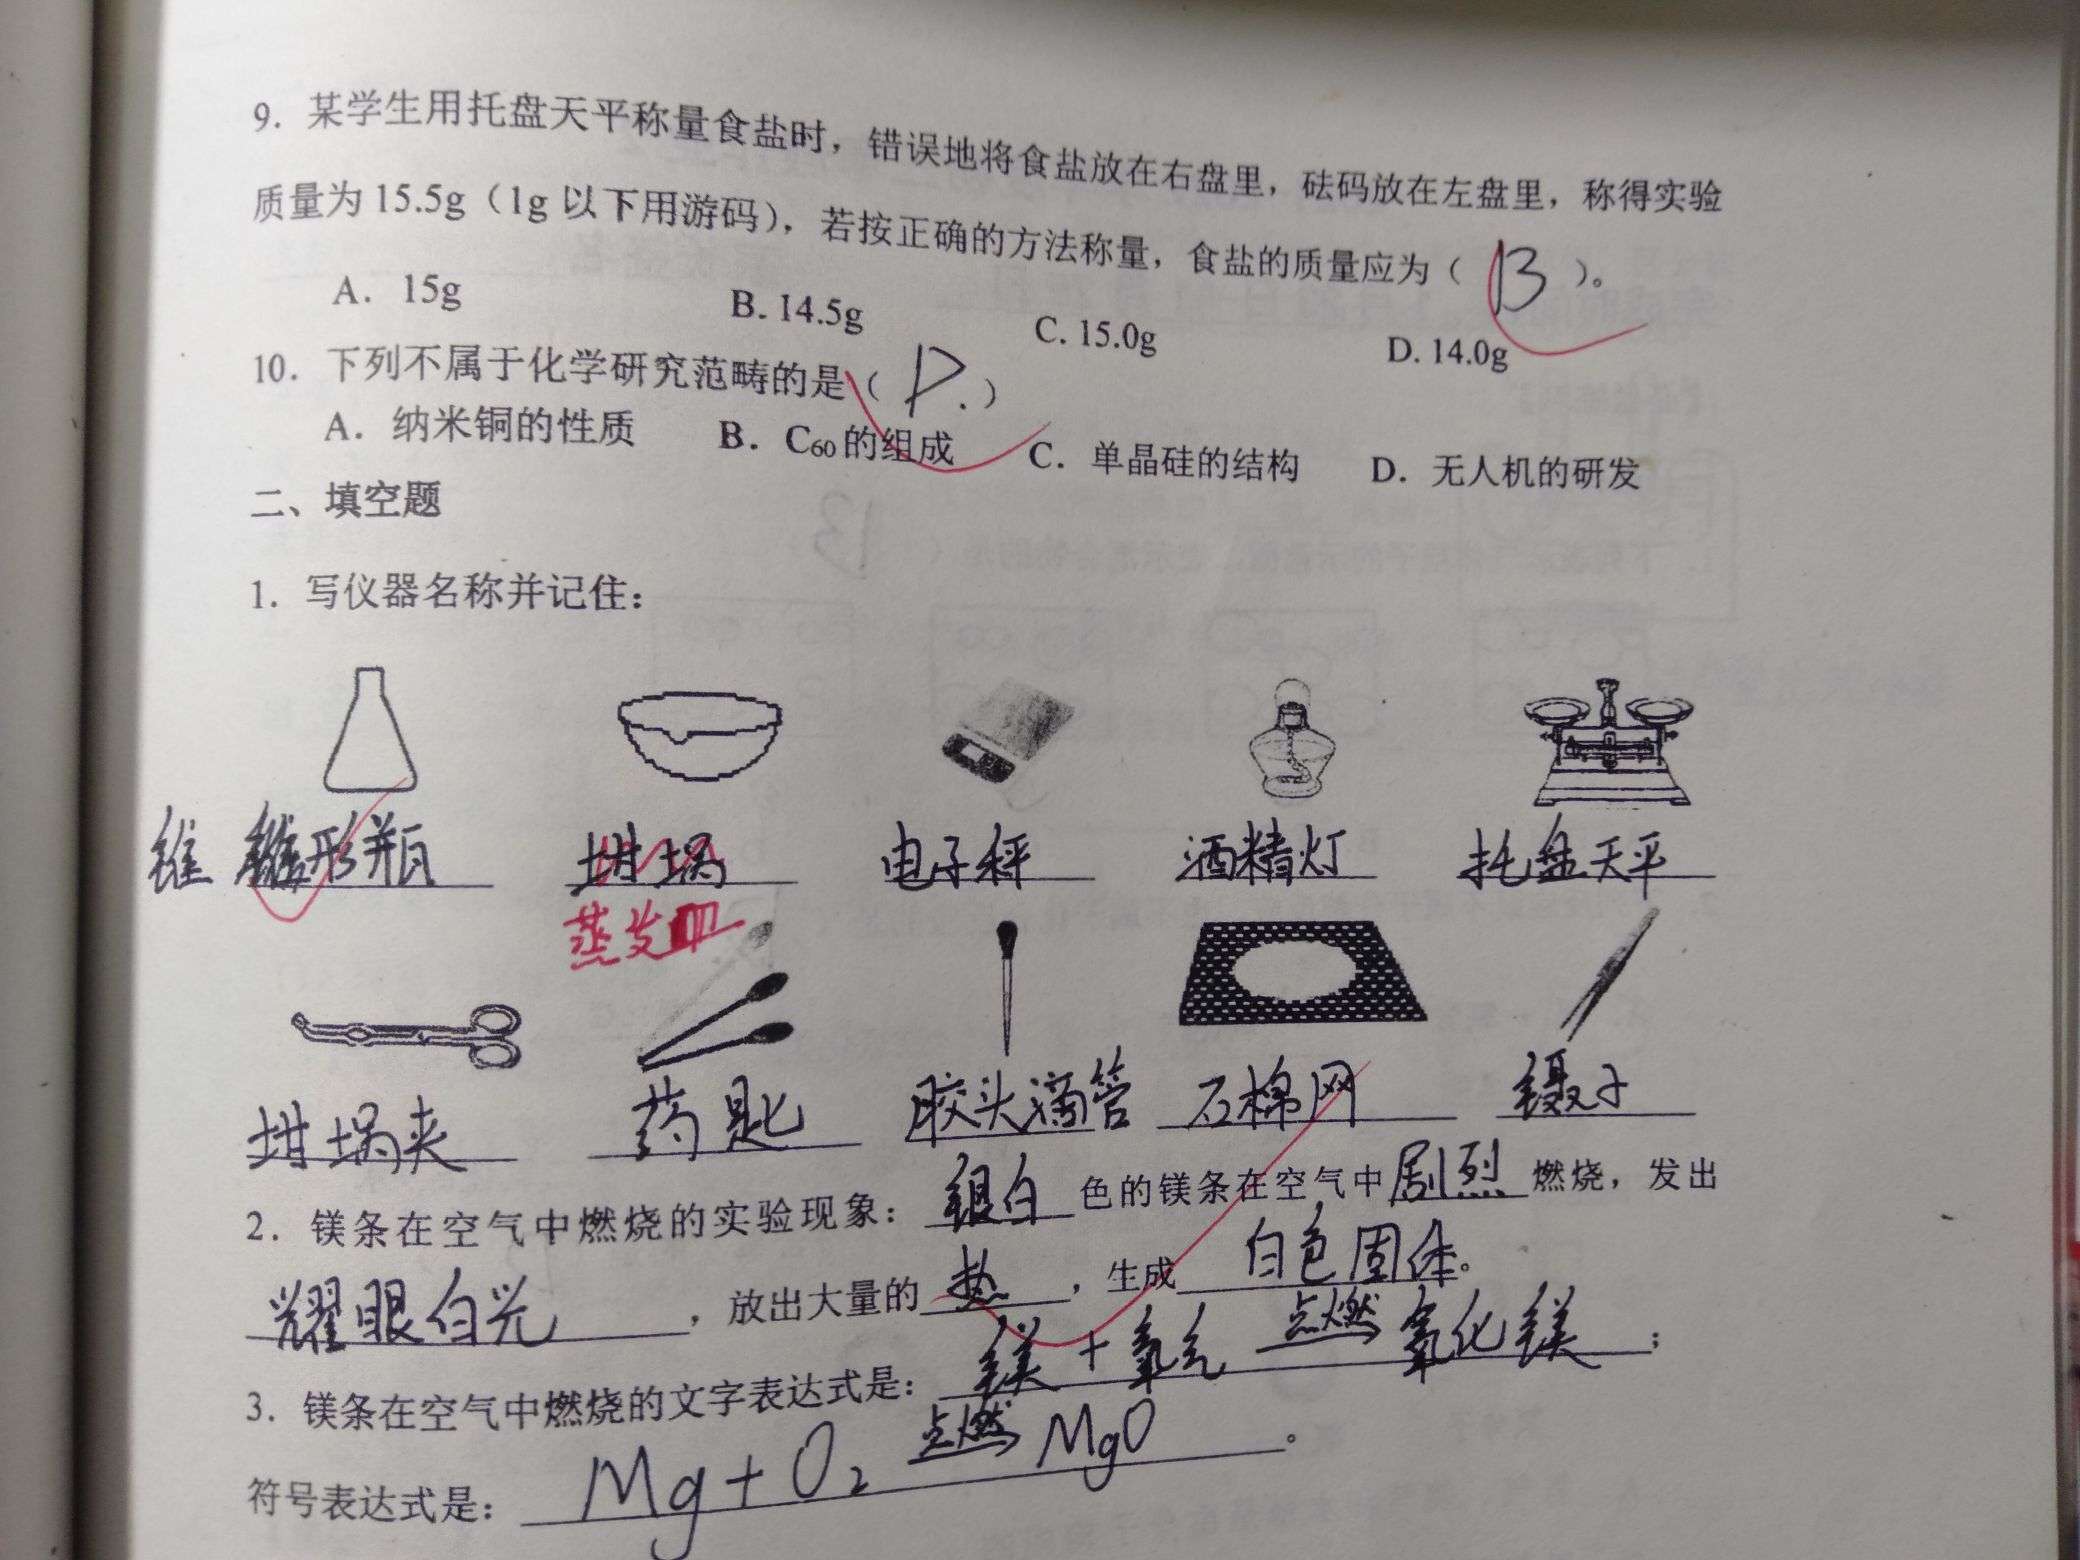 9. 某学生用托盘天平称量食盐时，错误地将食盐放在右盘里，砝码放在左盘里，称得实验
质量为 15.5g（1g 以下用游码），若按正确的方法称量，食盐的质量应为（ B ）。
A. 15g B. 14.5g C. 15.0g D. 14.0g
10. 下列不属于化学研究范畴的是（ D. ）
A. 纳米铜的性质 B. C₆₀的组成 C. 单晶硅的结构 D. 无人机的研发
二、填空题
1. 写仪器名称并记住：
锥 锥形瓶 坩埚 电子秤 酒精灯 托盘天平
蒸发皿
坩埚夹 药匙 胶头滴管 石棉网 镊子
2. 镁条在空气中燃烧的实验现象： 银白 色的镁条在空气中 剧烈 燃烧，发出
耀眼白光 ，放出大量的 热 ，生成 白色固体。
3. 镁条在空气中燃烧的文字表达式是： 镁 + 氧气 点燃→ 氧化镁 ；
符号表达式是： Mg + O₂ 点燃→ MgO 。